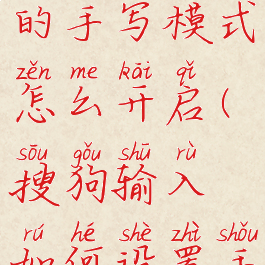 的手写模式
zěn me kāi qǐ
怎么开启(
sōu gǒu shū rù
搜狗输入
rú hé shè zhì shǒu
如何设置手